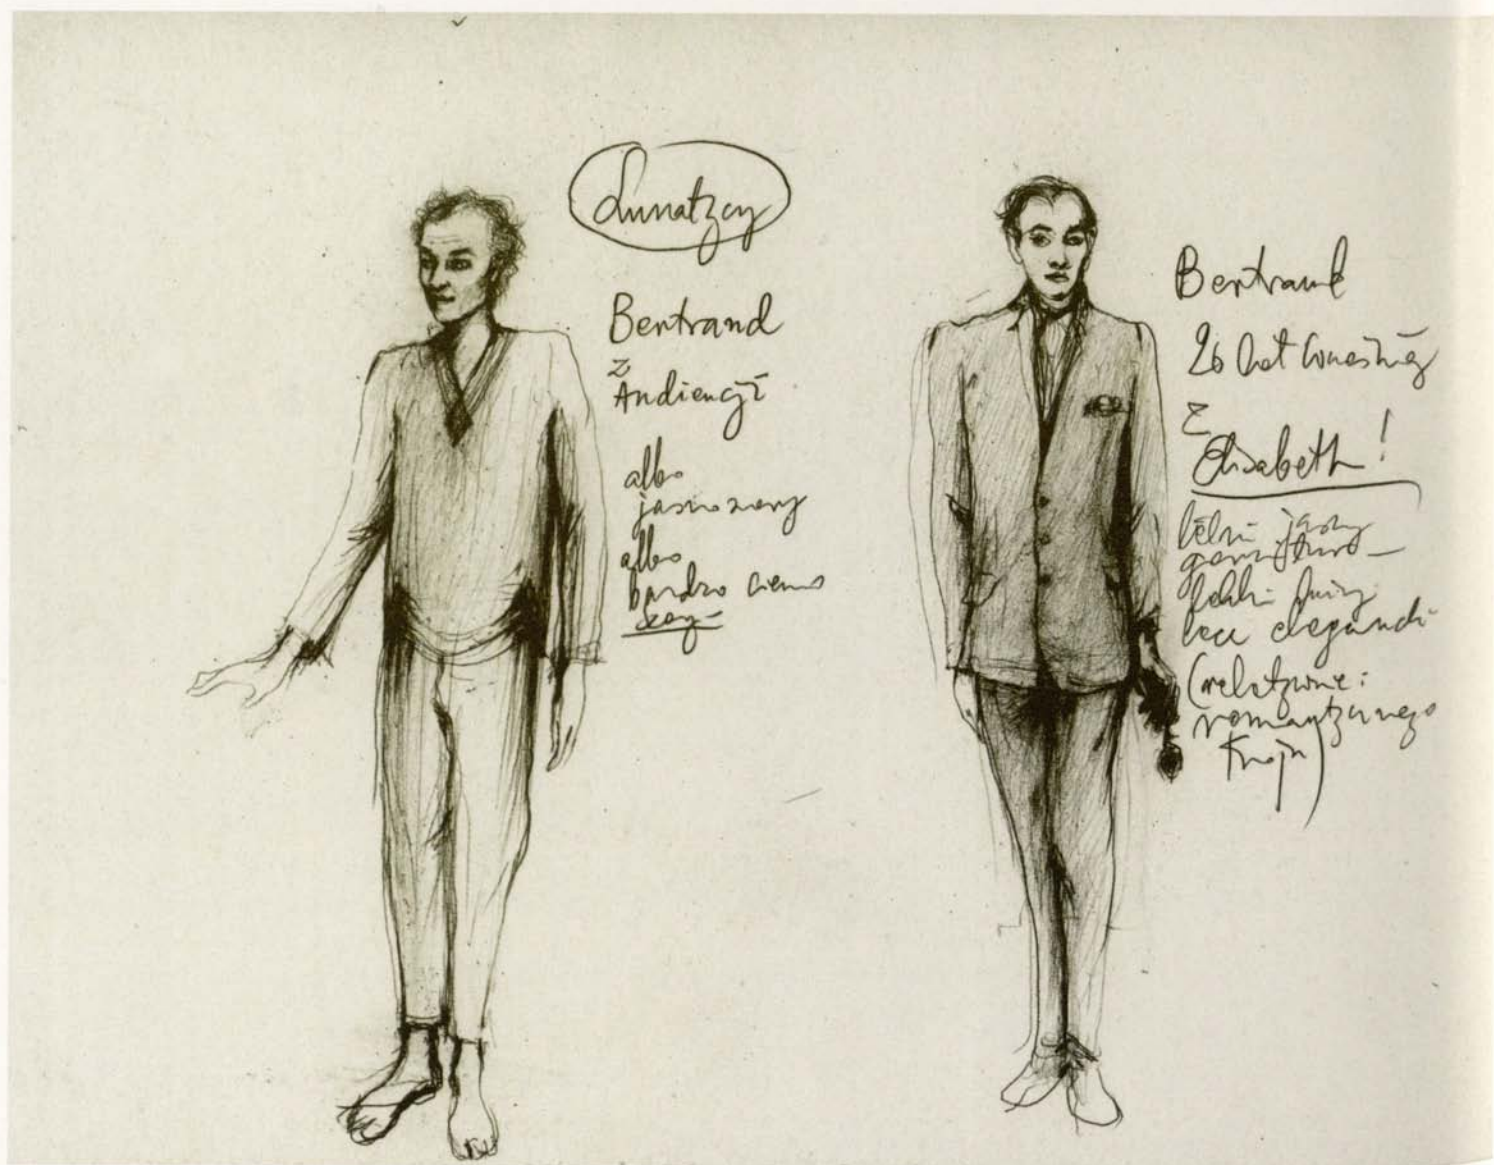 Lunatycy
Bertrand
z
Audiencji
albo
jasno szary
albo
bardzo ciemno
szary
Bertrand
26 lat wcześniej
z
Elisabeth!
jasny
garnitur
lecz elegancki
(relatywnie:
romantycznego
kroju)